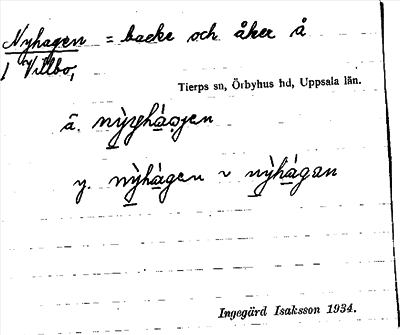 Nyhagen = backe och åker å
Villbo,
Tierps sn, Örbyhus hd, Uppsala län.
ä. nỳrhágen
y. nỳhágen ~ nỳhágan
Ingegärd Isaksson 1934.